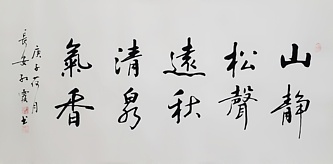 山静
松聲
遠秋
清泉
氣香
庚子荷月
長安孙霞书